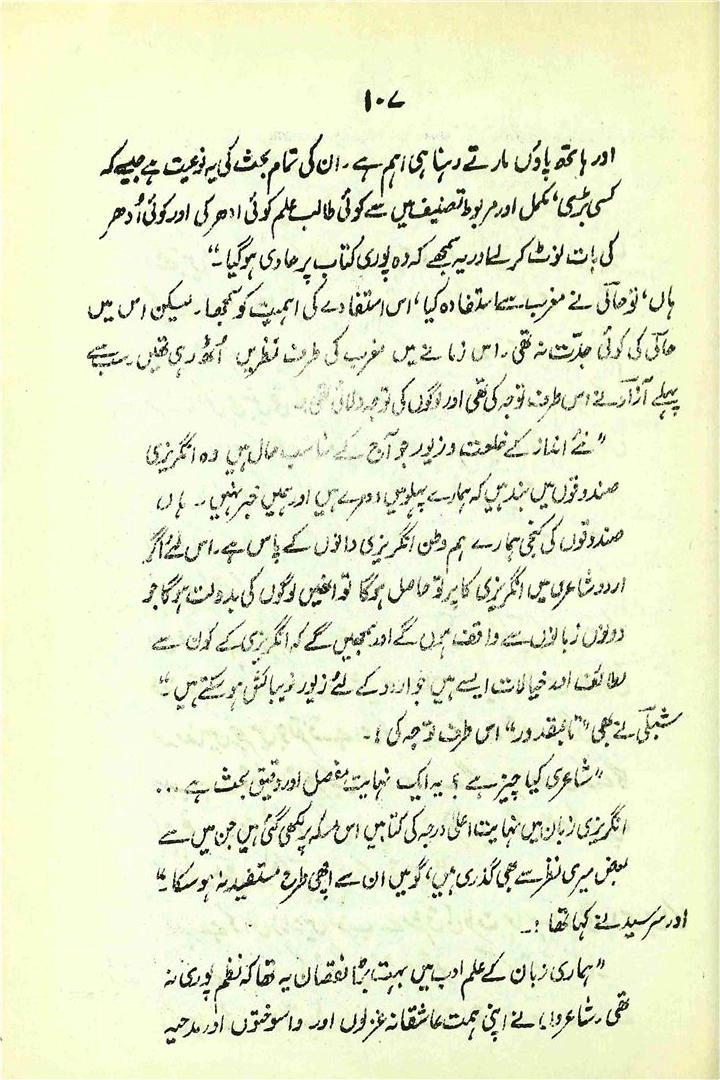 ۱۰۷
اور ہاتھ پاؤں مارتے رہنا ہی اہم ہے۔ ان کی تمام بحث کی یہ نوعیت ہے جیسے کہ
کسی بڑی، مکمل اور مربوط تصنیف میں سے کوئی طالب علم کوئی ادھر کی اور کوئی اُدھر
کی بات نوٹ کر لے اور یہ سمجھے کہ وہ پوری کتاب پر حاوی ہوگیا۔"
ہاں، تو حالی نے مغرب سے استفادہ کیا، اس استفادے کی اہمیت کو سمجھا۔ لیکن اس میں
حالی کی کوئی جدّت نہ تھی۔ اس زمانے میں مغرب کی طرف نظریں اُٹھ رہی تھیں۔ سب سے
پہلے آزاد نے اس طرف توجہ کی تھی اور لوگوں کی توجہ دلائی تھی۔
"نئے انداز کے خلعت و زیور جو آج کے مناسب حال ہیں وہ انگریزی
صندوقوں میں بند ہیں کہ ہمارے پہلو میں دھرے ہیں اور ہمیں خبر نہیں۔ ہاں
صندوقوں کی کنجی ہمارے ہم وطن انگریزی دانوں کے پاس ہے۔ اس لئے اگر
اردو شاعری میں انگریزی کا پرتو حاصل ہوگا تو انھیں لوگوں کی بدولت ہوگا جو
دونوں زبانوں سے واقف ہوں گے اور سمجھیں گے کہ انگریزی کے کون سے
لطائف اور خیالات ایسے ہیں جو اردو کے لئے زیور زیبائش ہو سکتے ہیں۔"
شبلی نے بھی "تا بمقدور" اس طرف توجہ کی :۔
"شاعری کیا چیز ہے ؟ یہ ایک نہایت مفصل اور دقیق بحث ہے ...
انگریزی زبان میں نہایت اعلیٰ درجہ کی کتابیں اس مسئلہ پر لکھی گئی ہیں جن میں سے
بعض میری نظر سے بھی گذری ہیں، گو میں ان سے اچھی طرح مستفید نہ ہو سکا۔"
اور سرسید نے کہا تھا :۔
"ہماری زبان کے علم ادب میں بہت بڑا نقصان یہ تھا کہ نظم پوری نہ
تھی۔ شاعروں نے اپنی ہمت عاشقانہ غزلوں اور واسوختوں اور مدحیہ